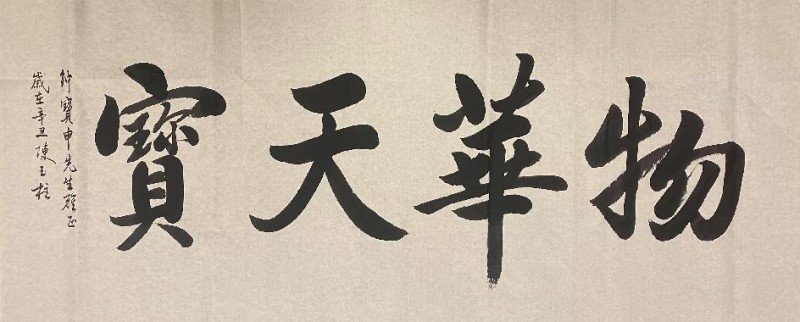 物華天寶
寶申先生雅正
歲在辛丑陳玉柱